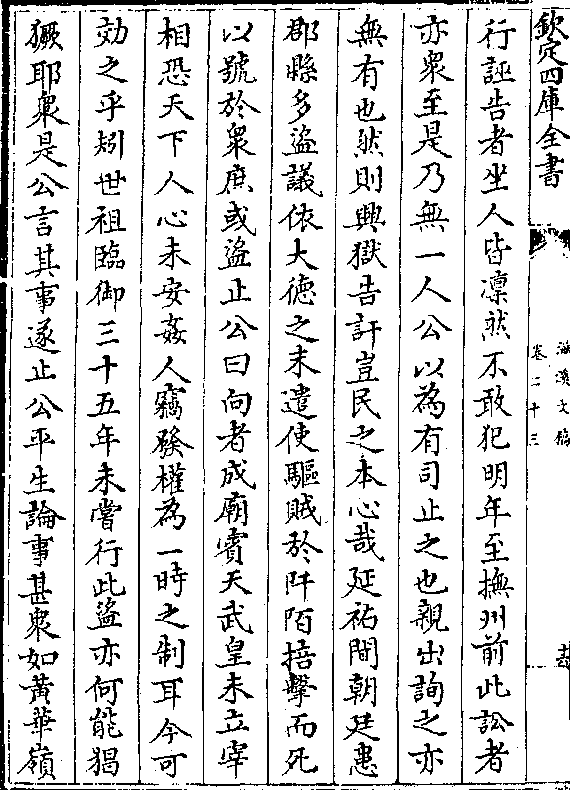 欽定四庫全書
滋溪文稿
卷二十三
行誣告者坐人皆凛然不敢犯明年至撫州前此訟者
亦衆至是乃無一人公以為有司止之也親出詢之亦
無有也然則興獄告訐豈民之本心哉延祐間朝廷患
郡縣多盜議依大德之末遣使驅賊於阡陌掊擊而死
以號於衆庶或盜止公曰向者成廟賓天武皇未立宰
相恐天下人心未安姦人竊發權為一時之制耳今可
効之乎矧世祖臨御三十五年未嘗行此盜亦何能猖
獗耶衆是公言其事遂止公平生論事甚衆如黄華嶺